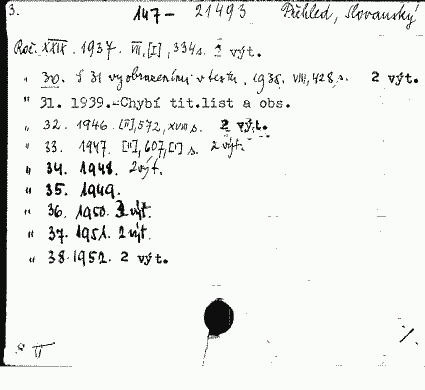 3. 147- 21493 Přehled, Slovanský
Roč. XXIX. 1937. VII,[I], 334s. 2 výt.
" 30. S 31 vyobrazeními v textu. 1938. VIII, 428 s. 2 výt.
" 31. 1939.-Chybí tit.list a obs.
" 32. 1946. [II], 572, XVIII s. 2 výt.
" 33. 1947. [II], 607, [I] s. 2 výt.
" 34. 1948. 2 výt.
" 35. 1949.
" 36. 1950. 2 výt.
" 37. 1951. 2 výt.
" 38. 1952. 2 výt.